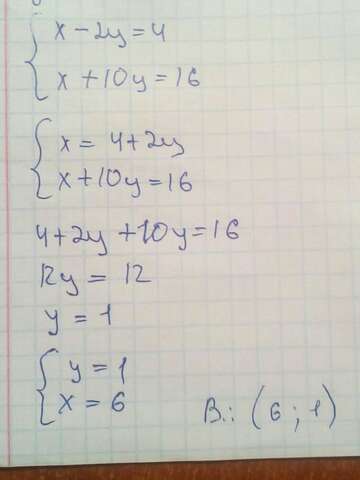 x - 2y = 4
x + 10y = 16
x = 4 + 2y
x + 10y = 16
4 + 2y + 10y = 16
12y = 12
y = 1
y = 1
x = 6
В.: (6 ; 1)